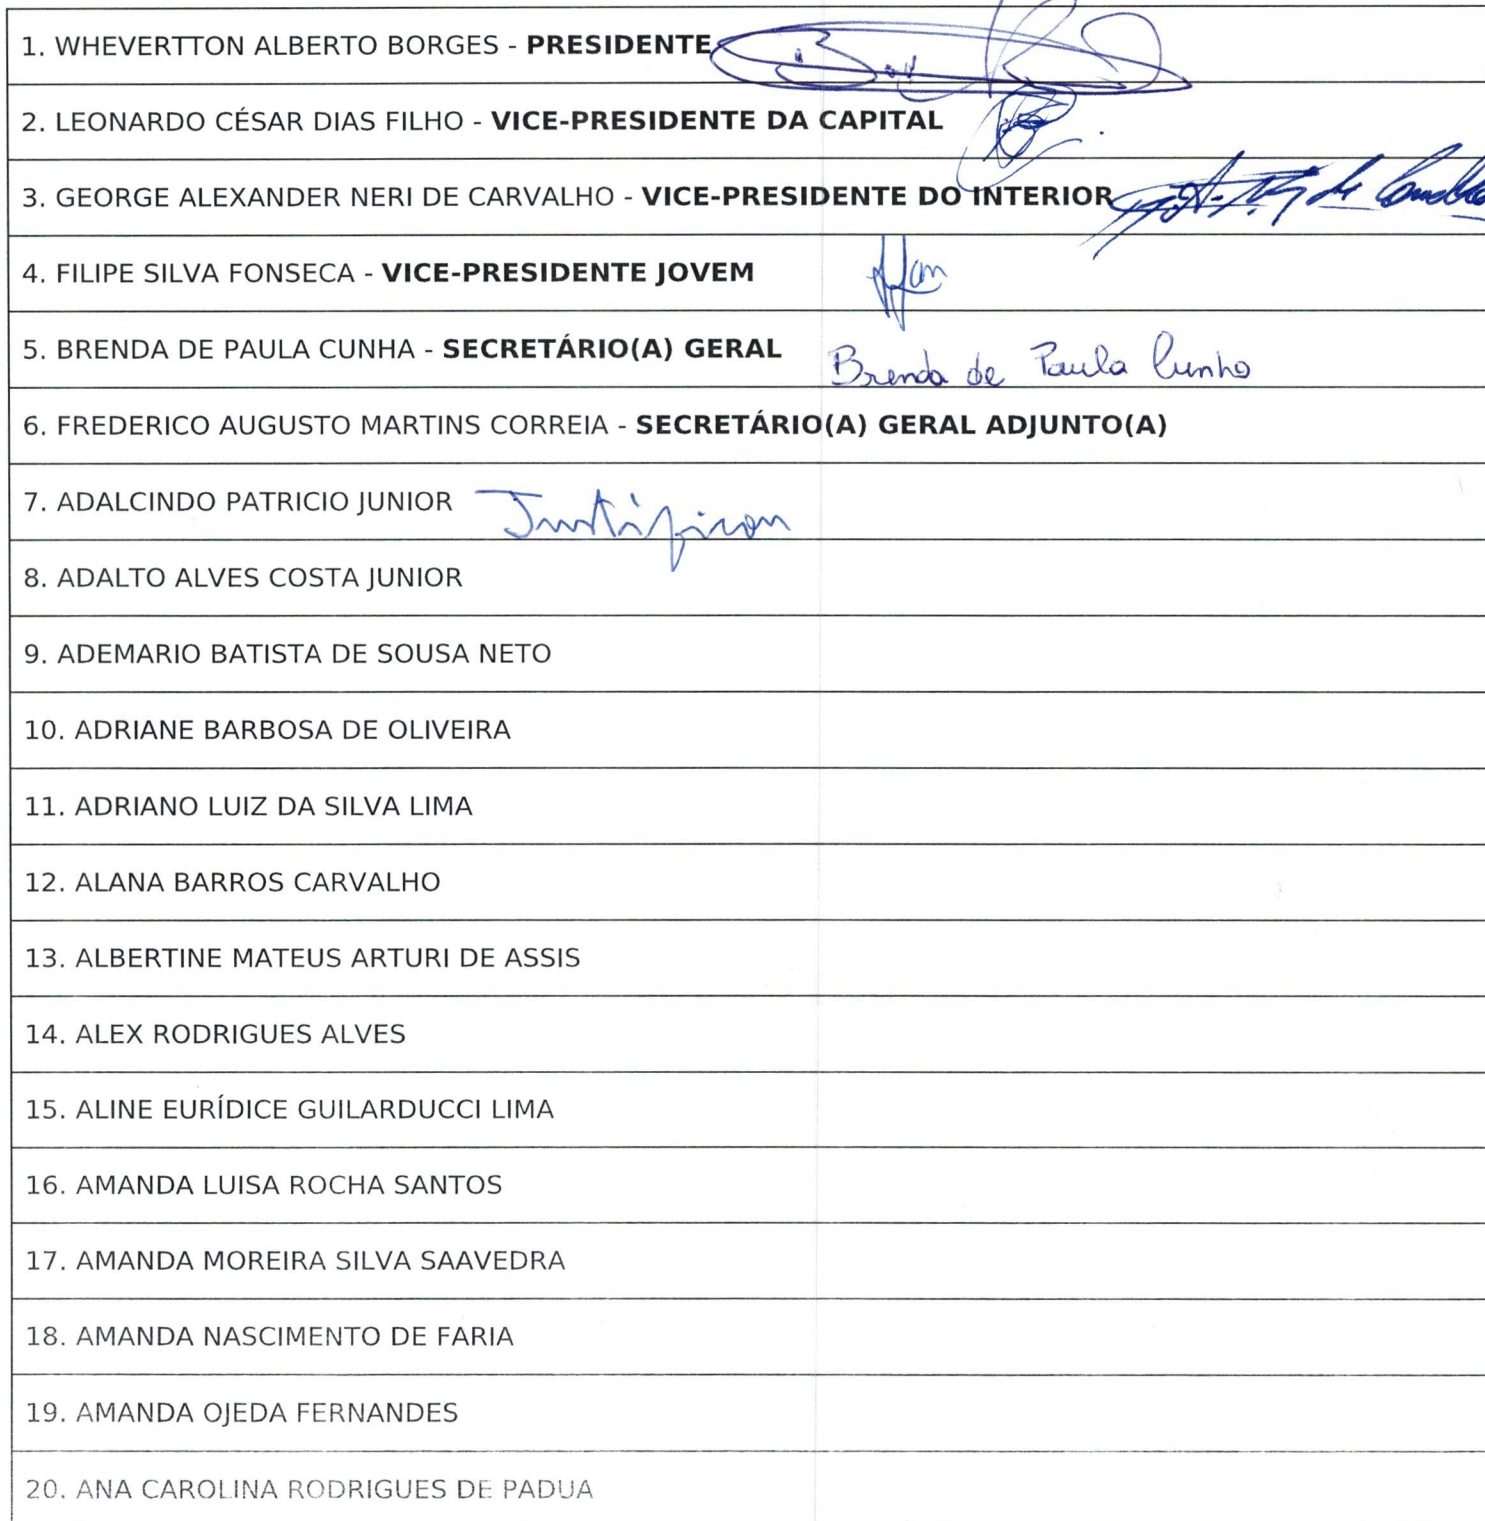 1. WHEVERTTON ALBERTO BORGES - PRESIDENTE
2. LEONARDO CÉSAR DIAS FILHO - VICE-PRESIDENTE DA CAPITAL
3. GEORGE ALEXANDER NERI DE CARVALHO - VICE-PRESIDENTE DO INTERIOR
4. FILIPE SILVA FONSECA - VICE-PRESIDENTE JOVEM
5. BRENDA DE PAULA CUNHA - SECRETÁRIO(A) GERAL Brenda de Paula Cunha
6. FREDERICO AUGUSTO MARTINS CORREIA - SECRETÁRIO(A) GERAL ADJUNTO(A)
7. ADALCINDO PATRICIO JUNIOR Justificou
8. ADALTO ALVES COSTA JUNIOR
9. ADEMARIO BATISTA DE SOUSA NETO
10. ADRIANE BARBOSA DE OLIVEIRA
11. ADRIANO LUIZ DA SILVA LIMA
12. ALANA BARROS CARVALHO
13. ALBERTINE MATEUS ARTURI DE ASSIS
14. ALEX RODRIGUES ALVES
15. ALINE EURÍDICE GUILARDUCCI LIMA
16. AMANDA LUISA ROCHA SANTOS
17. AMANDA MOREIRA SILVA SAAVEDRA
18. AMANDA NASCIMENTO DE FARIA
19. AMANDA OJEDA FERNANDES
20. ANA CAROLINA RODRIGUES DE PADUA